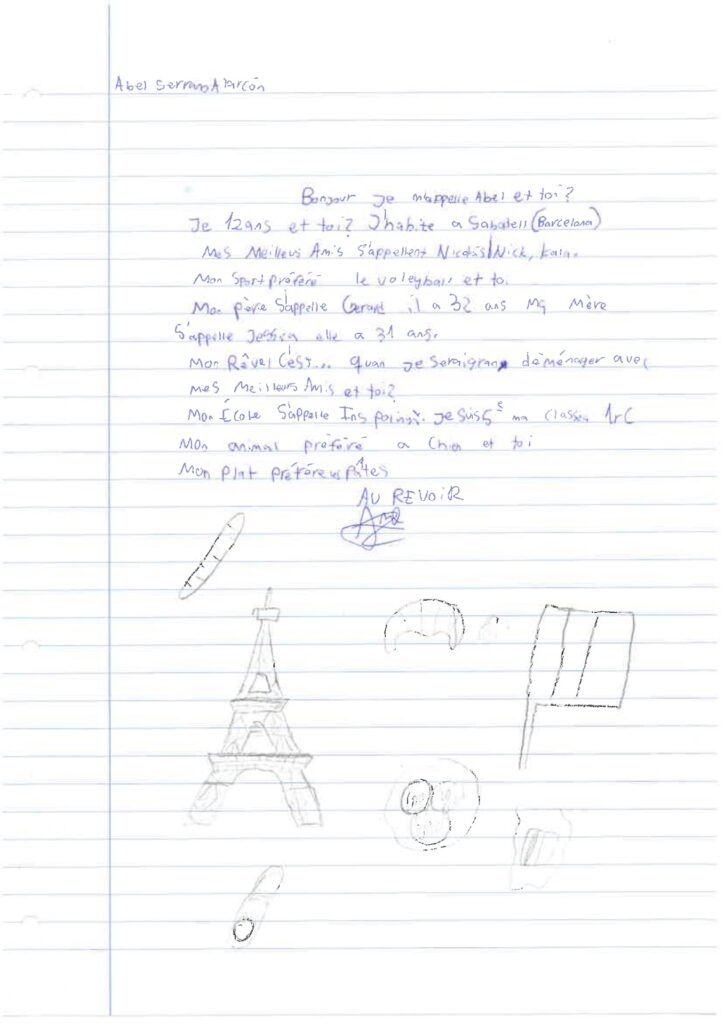 Abel Serrano Alarcón
Bonjour Je m'appelle Abel et toi?
Je 12 ans et toi? J'habite a Sabadell (Barcelona)
Mes Meilleus Amis S'appellent Nicolás/Nick, Kaia.
Mon Sport préféré le voleyball et toi
Mon père S'appelle Gerard il a 32 ans Ma Mère
S'appelle Jessica elle a 31 ans.
Mon Rêvel C'és... quan Je seraigran déménager avec
mes Meilleurs Amis et toi?
Mon École S'appelle Ins Je suis ma classe 1rC
Mon animal préféré a Chien et toi
Mon plat préféré pâtes
AU REVOIR